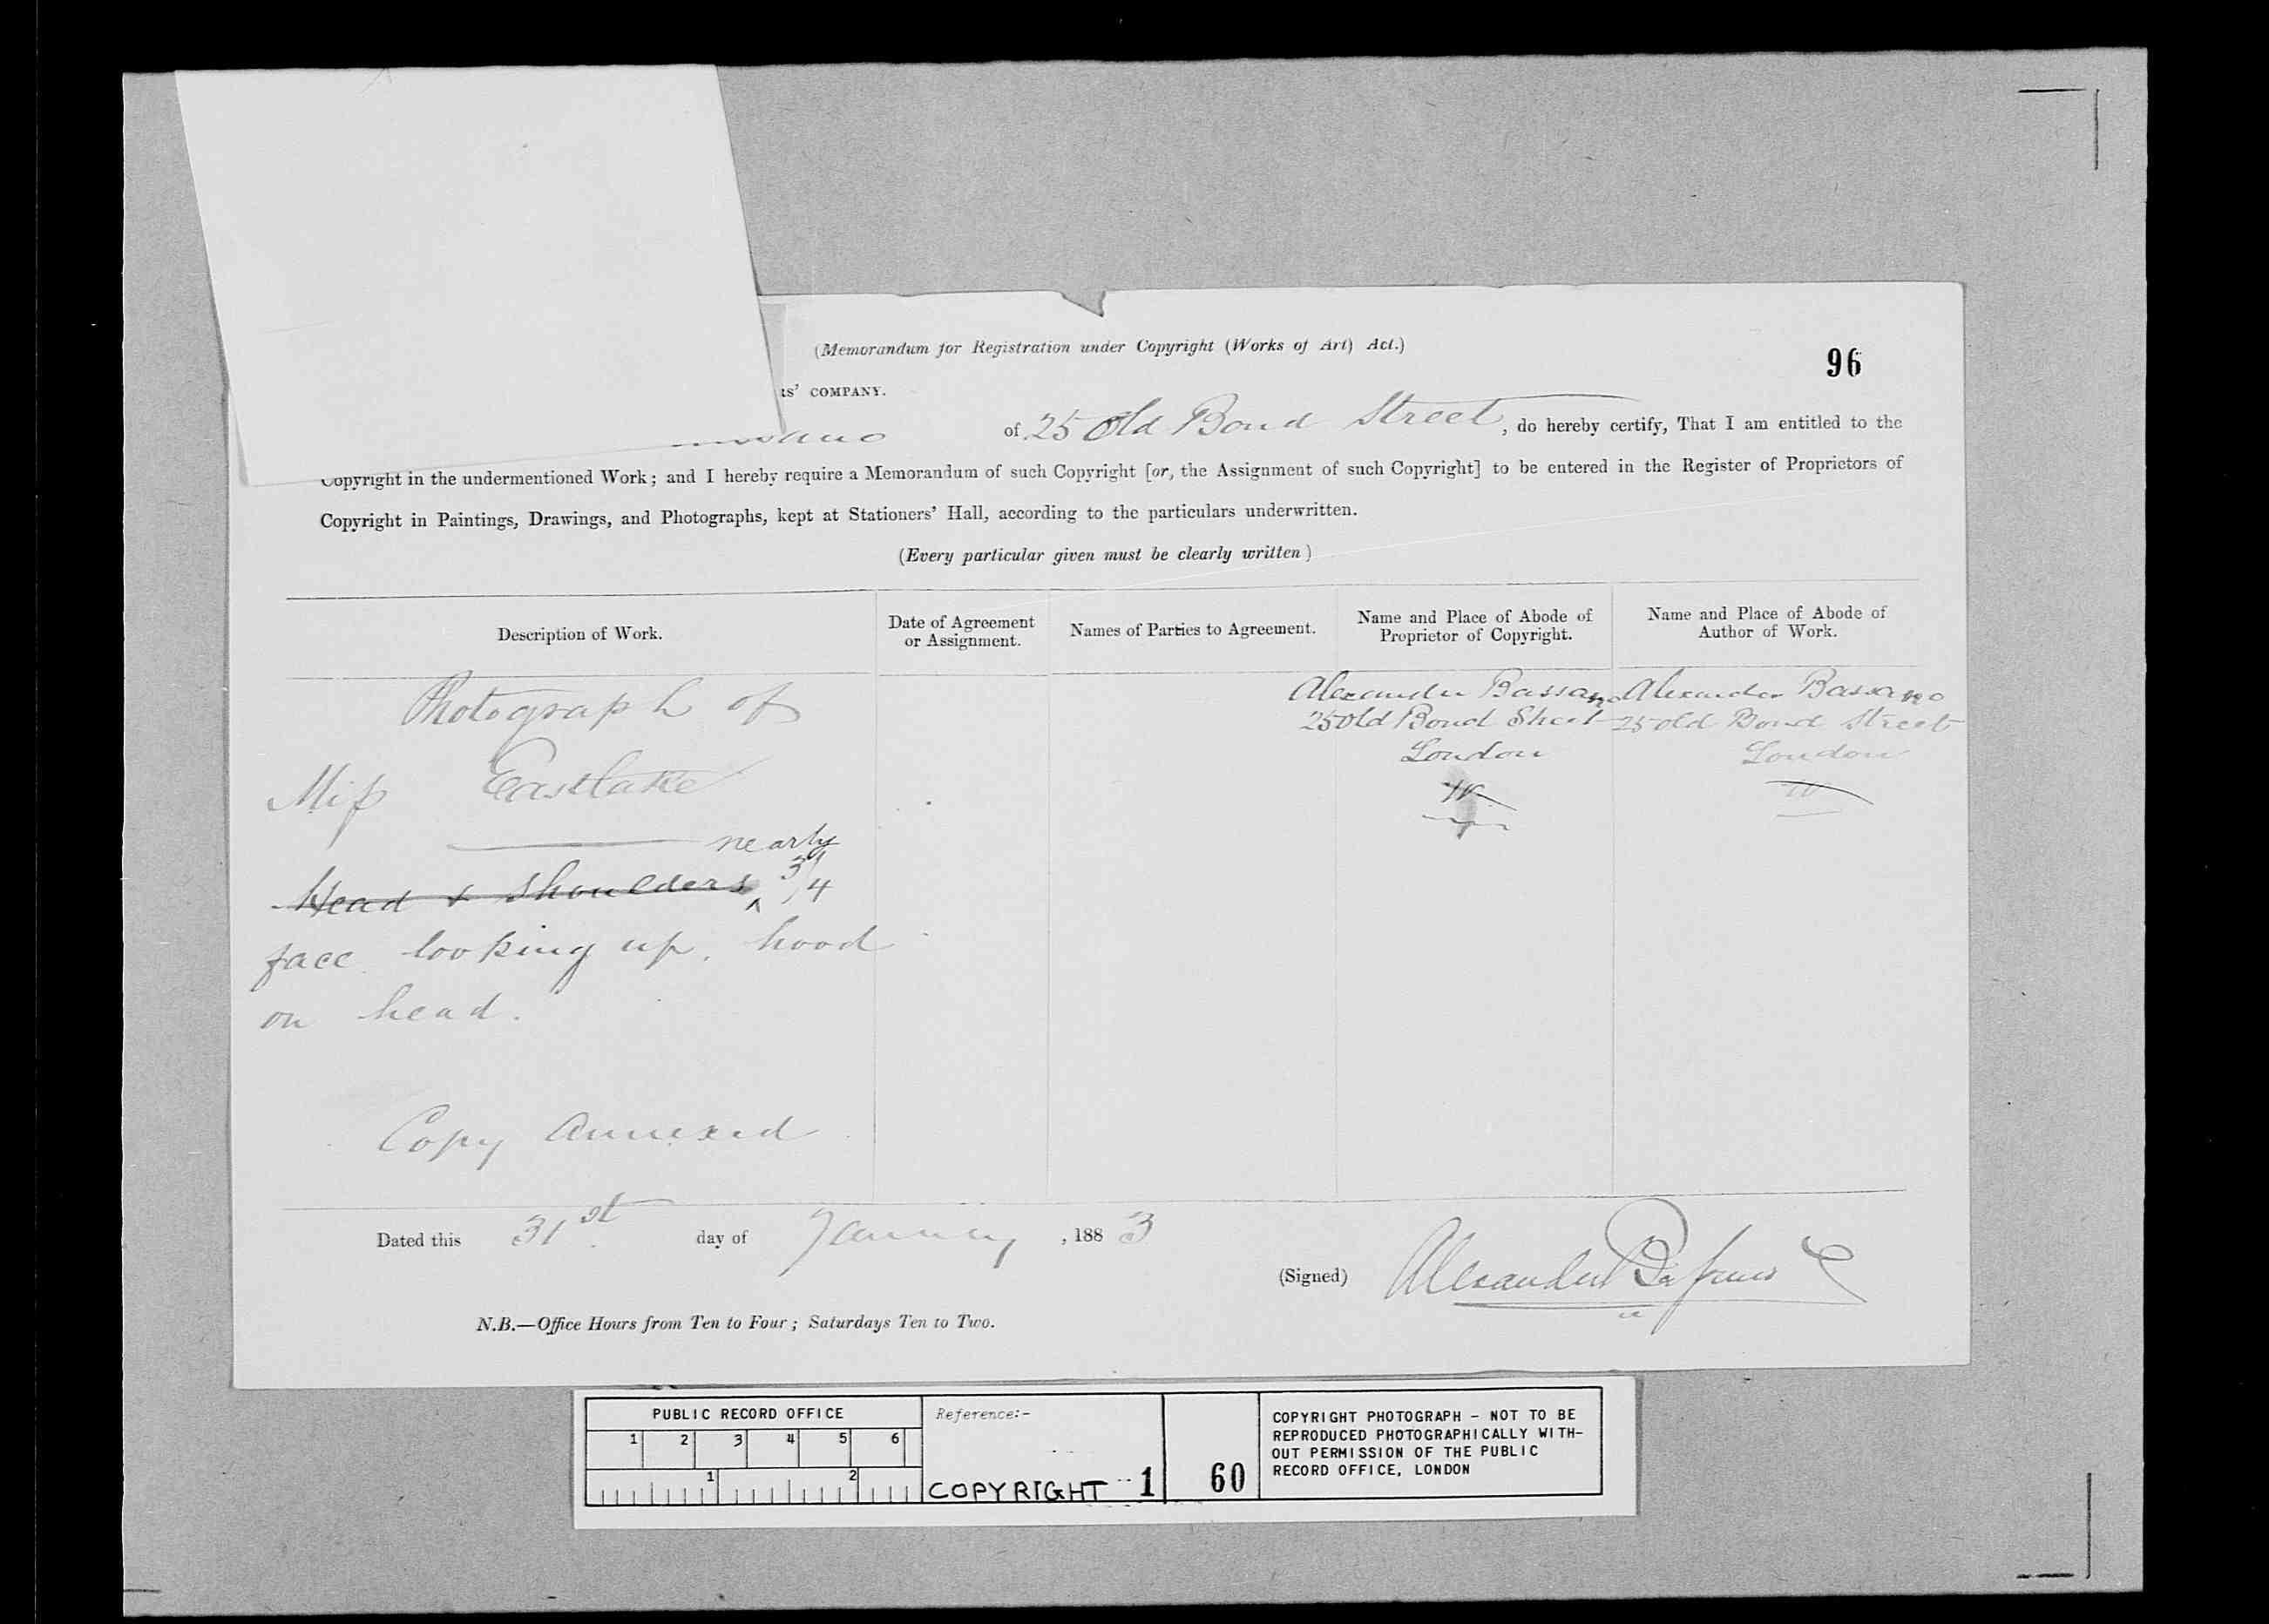 (Memorandum for Registration under Copyright (Works of Art) Act.)
96
COMPANY.
of 25 Old Bond Street, do hereby certify, That I am entitled to the
Copyright in the undermentioned Work; and I hereby require a Memorandum of such Copyright [or, the Assignment of such Copyright] to be entered in the Register of Proprietors of
Copyright in Paintings, Drawings, and Photographs, kept at Stationers' Hall, according to the particulars underwritten.
(Every particular given must be clearly written)
Description of Work.
Date of Agreement
or Assignment.
Names of Parties to Agreement.
Name and Place of Abode of
Proprietor of Copyright.
Name and Place of Abode of
Author of Work.
Photograph of
Miss Eastlake
nearly
Head & Shoulders ^ 3/4
face looking up, hood
on head.
Copy annexed
Alexander Bassano
25 Old Bond Street
London
W
Alexander Bassano
25 Old Bond Street
London
W
Dated this 31st day of January, 1883
(Signed) Alexander Bassano
N.B.—Office Hours from Ten to Four; Saturdays Ten to Two.
PUBLIC RECORD OFFICE
1 2 3 4 5 6
1 2
Reference:-
COPYRIGHT 1
60
COPYRIGHT PHOTOGRAPH - NOT TO BE
REPRODUCED PHOTOGRAPHICALLY WITH-
OUT PERMISSION OF THE PUBLIC
RECORD OFFICE, LONDON